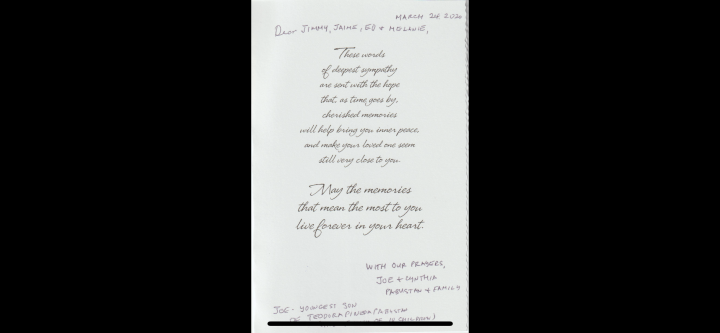 MARCH 20, 2020
Dear JIMMY, JAIME, ED & MELANIE,
These words
of deepest sympathy
are sent with the hope
that, as time goes by,
cherished memories
will help bring you inner peace,
and make your loved one seem
still very close to you.
May the memories
that mean the most to you
live forever in your heart.
WITH OUR PRAYERS,
JOE & CYNTHIA
& FAMILY
JOE - YOUNGEST SON
OF TEODORA